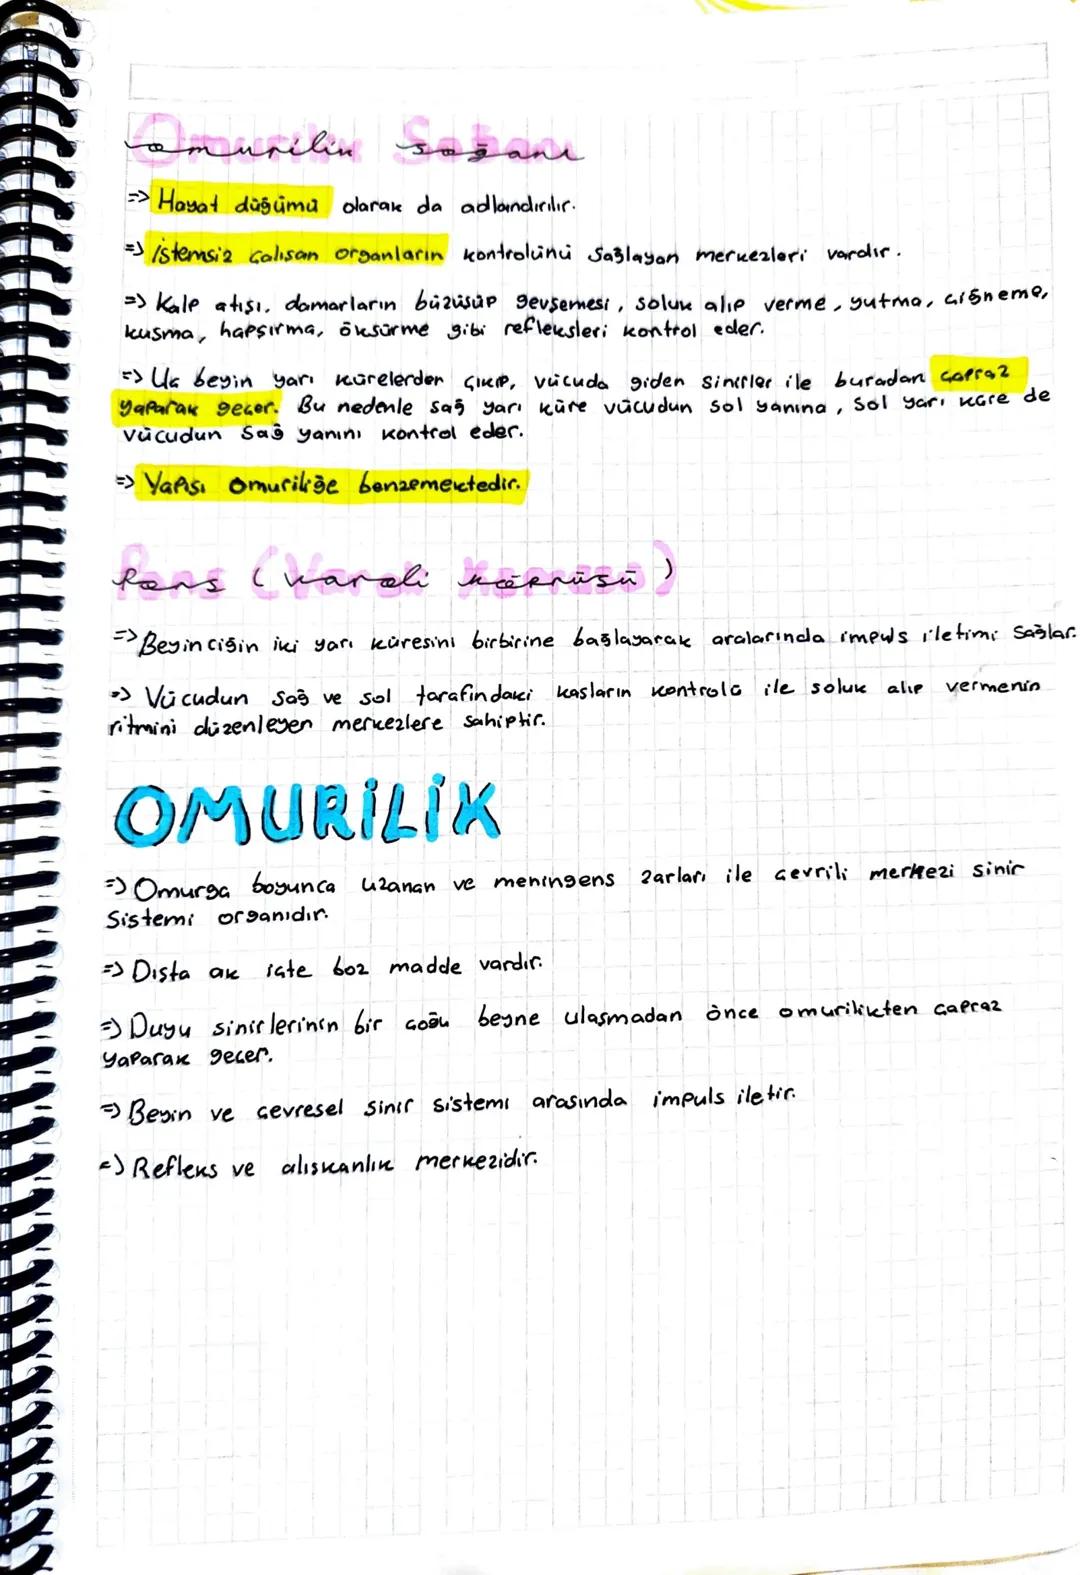 Omurilik Soğanı
=> Hayat düğümü olarak da adlandırılır.
=> İstemsiz çalışan organların kontrolünü sağlayan merkezleri vardır.
=> Kalp atışı, damarların büzüşüp gevşemesi, soluk alıp verme, yutma, çiğneme,
kusma, hapşırma, öksürme gibi refleksleri kontrol eder.
=> Uç beyin yarı kürelerden çıkıp, vücuda giden sinirler ile buradan çapraz
yaparak geçer. Bu nedenle sağ yarı küre vücudun sol yanına, sol yarı küre de
vücudun sağ yanını kontrol eder.
=> Yapısı omuriliğe benzemektedir.
Pons (Varoli Köprüsü)
=> Beyinciğin iki yarı küresini birbirine bağlayarak aralarında impuls iletimi sağlar.
=> Vücudun sağ ve sol tarafındaki kasların kontrolü ile soluk alıp vermenin
ritmini düzenleyen merkezlere sahiptir.
OMURİLİK
=> Omurga boyunca uzanan ve meninges zarları ile çevrili merkezi sinir
Sistemi organıdır.
=> Dışta ak içte boz madde vardır.
=> Duyu sinirlerinin bir çoğu beyne ulaşmadan önce omurilikten çapraz
yaparak geçer.
=> Beyin ve çevresel sinir sistemi arasında impuls iletir.
=> Refleks ve alışkanlık merkezidir.